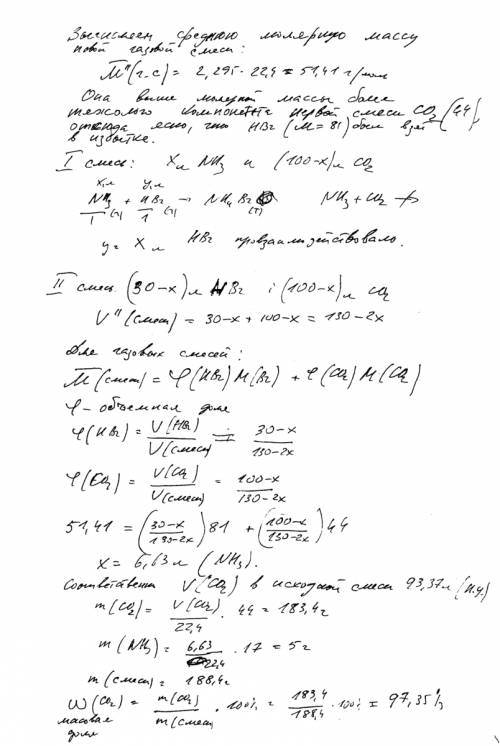 Вычисляем среднюю молярную массу
новой газовой смеси:
M̅"(г.с) = 2,295·22,4 = 51,41 г/моль
Она выше молярной массы более
тяжелого компонента первой смеси CO₂ (44),
откуда ясно, что HBr (M = 81) был взят
в избытке.
I смесь: Xл NH₃ и (100-x)л CO₂
xл yл
NH₃ + HBr → NH₄Br NH₃ + CO₂ ↛
1 (г) 1 (г) (т)
y = x л HBr провзаимодействовало.
II смесь (30-x)л HBr ; (100-x)л CO₂
V"(смеси) = 30-x + 100-x = 130-2x
Для газовых смесей:
M̅(смеси) = φ(HBr)M(Br) + φ(CO₂)M(CO₂)
φ - объемная доля
φ(HBr) = V(HBr)/V(смеси) = 30-x/130-2x
φ(CO₂) = V(CO₂)/V(смеси) = 100-x/130-2x
51,41 = (30-x/130-2x)81 + (100-x/130-2x)44
x = 6,63 л (NH₃).
Соответственно V(CO₂) в исходной смеси 93,37л (н.у.)
m(CO₂) = V(CO₂)/22,4 · 44 = 183,4г
m(NH₃) = 6,63/22,4 · 17 = 5г
m(смеси) = 188,4г
ω(CO₂) = m(CO₂)/m(смеси · 100% = 183,4/188,4 · 100% = 97,35%
массовая
доля